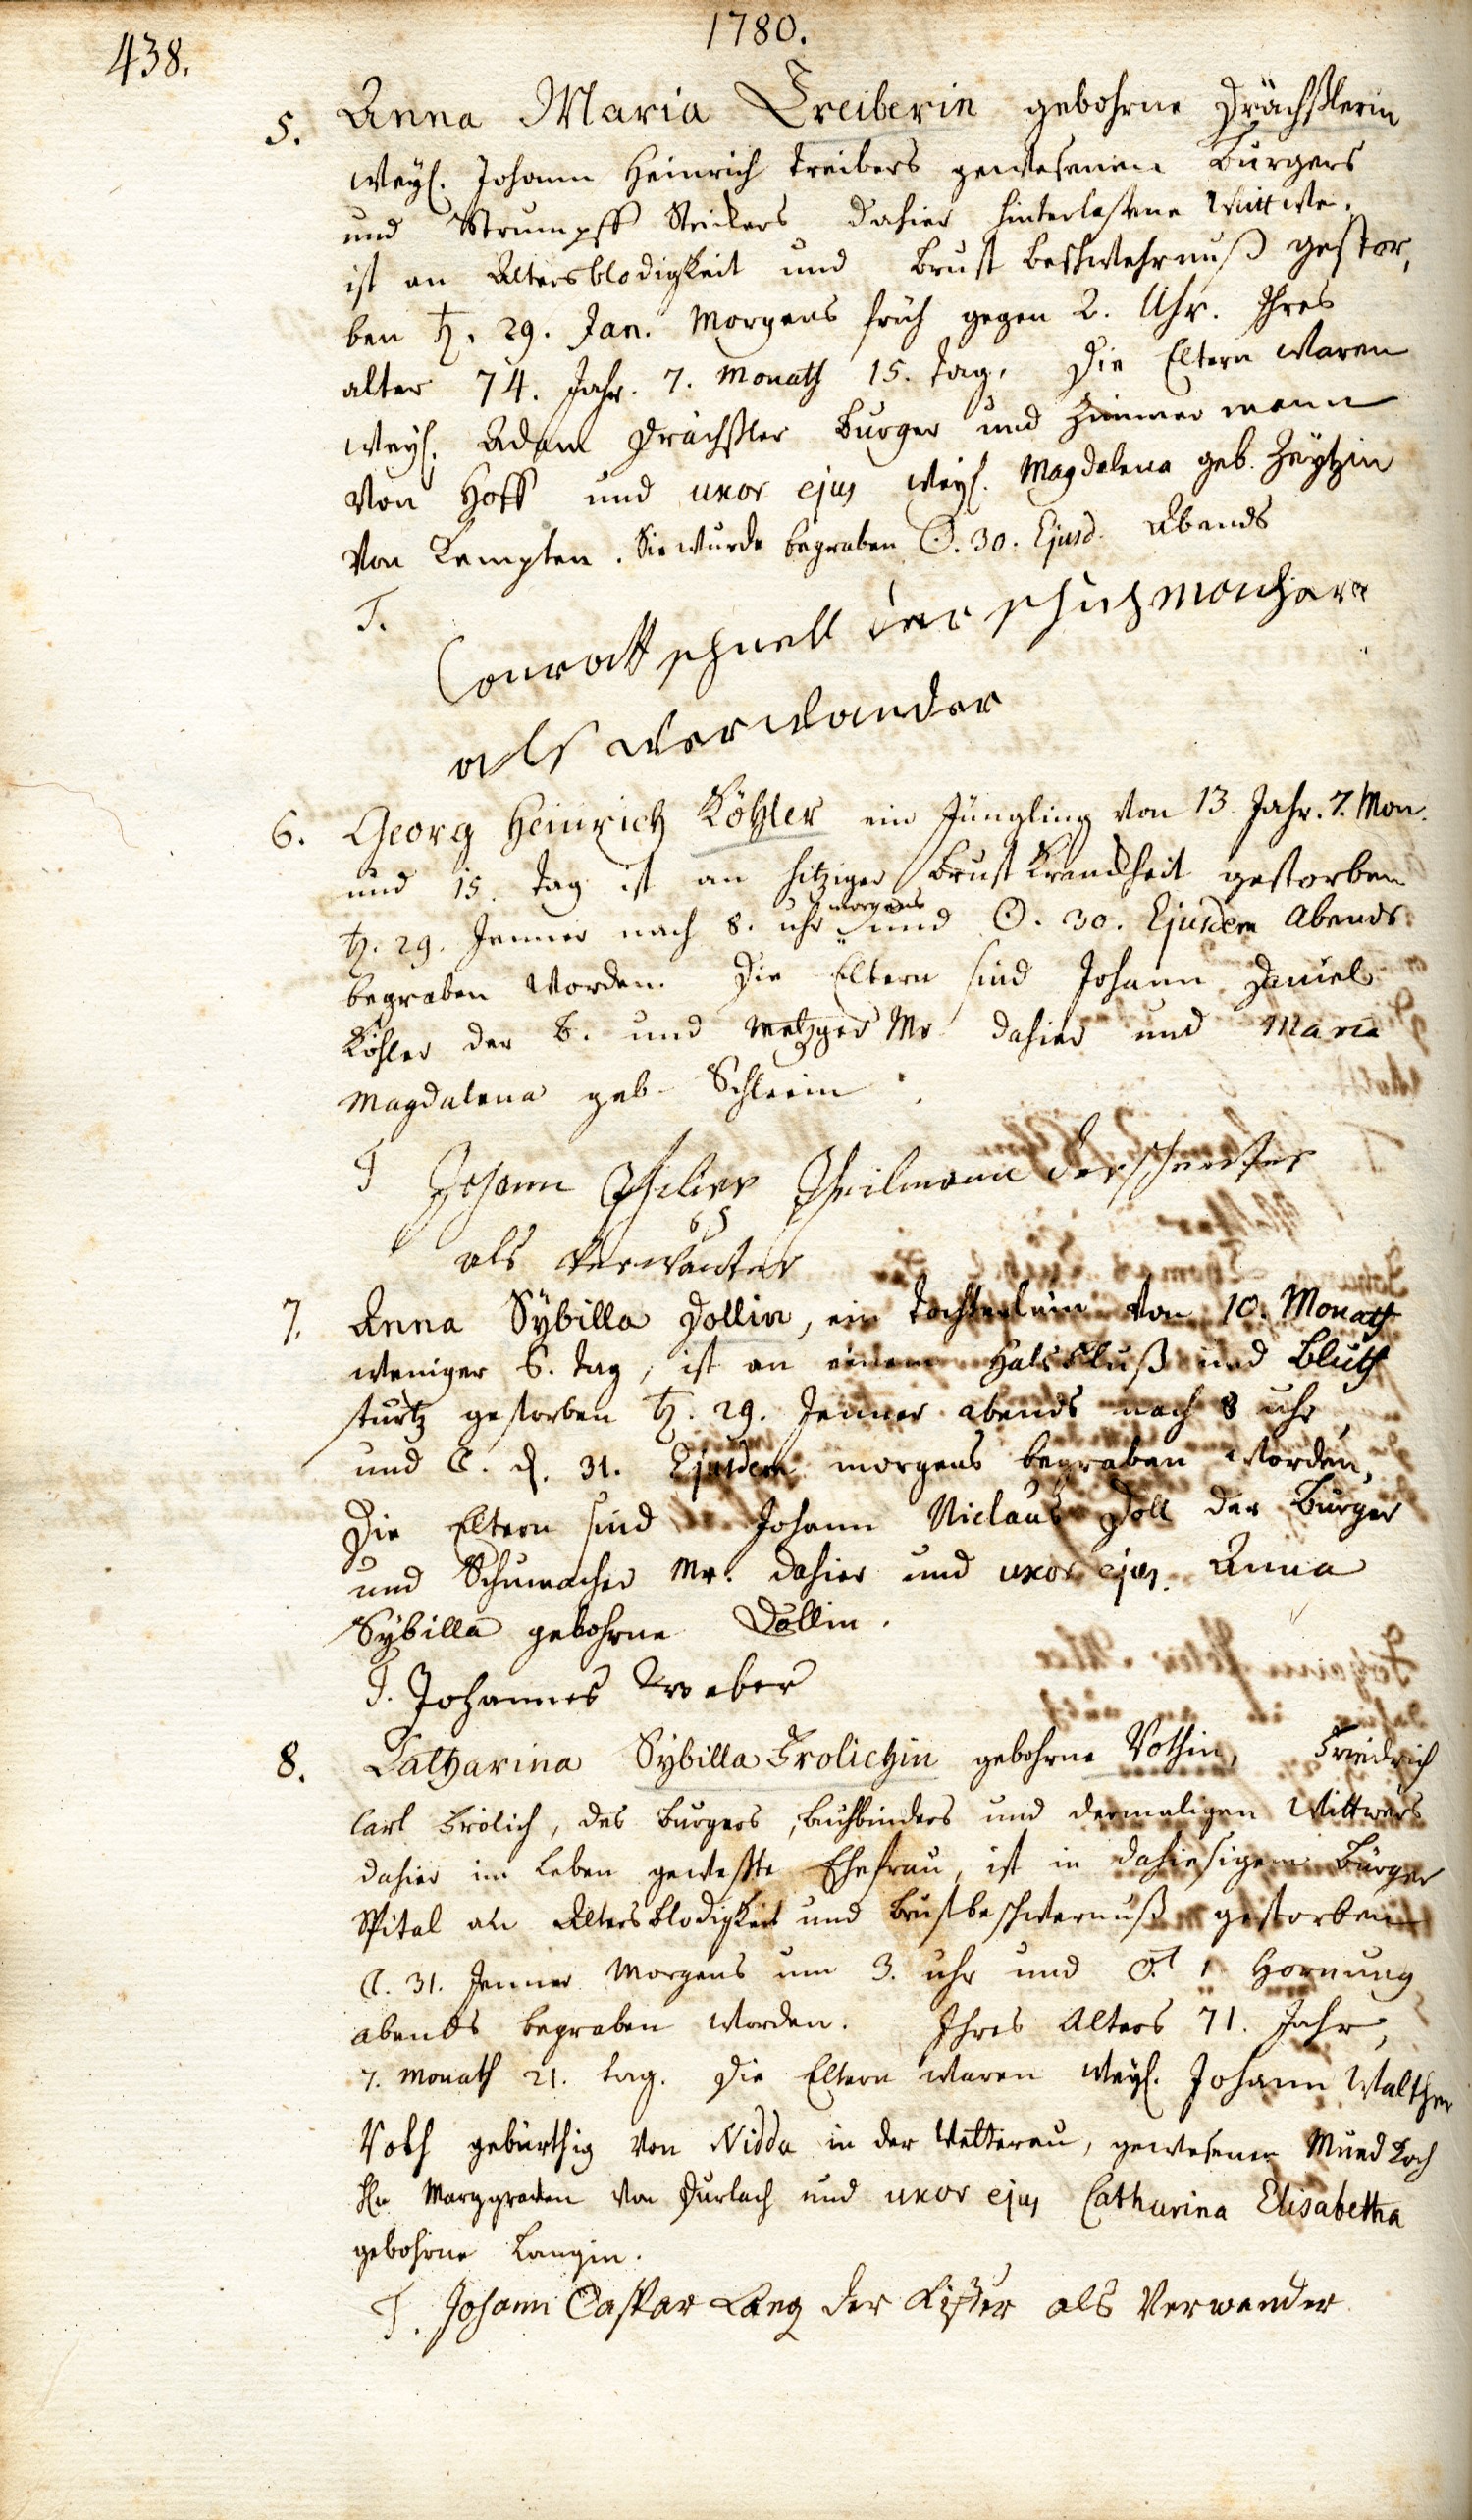 1780.
438.
5. Anna Maria Treiberin gebohrne Drächßlerin
weyl. Johann Heinrich Treibers gewesenen Burgers
und Strumpff Strickers dahier hinterlaßene Wittwe.
ist an Altersblodigkeit und Brust beschwehrnuß gestor,
ben ♄. 29. Jan. Morgens früh gegen 2. Uhr. Ihres
alter 74. Jahr. 7. Monath 15. Tag. Die Eltern waren
weyl. Adam Drächßler Burger und Zimmer mann
von Hoff und uxor ejus weyl. Magdalena geb. Zeytzin
von Kempten. Sie wurde begraben ☉. 30. Ejusd. Abends
T.
Conratt schnell der schuhmacher
als verwander
6. Georg Heinrich Köhler ein Jüngling von 13. Jahr. 7. Mon.
und 15. Tag ist an hitziger Brust Kranckheit gestorben
♄. 29. Jenner nach 8. uhr morgens und ☉. 30. Ejusdem Abends
begraben worden. Die Eltern sind Johann Daniel
Köhler der B. und Metzger Mr dahier und Maria
Magdalena geb. Schleim
T Johann Philipp Theilmann der
als verwanter
7. Anna Sybilla Dollin, ein Töchterlein von 10. Monath
weniger 6. Tag, ist an einem Halsfluß und Bluth
sturtz gestorben ♄. 29. Jenner abends nach 8 uhr
und ☾. d. 31. Ejusdem morgens begraben worden,
Die Eltern sind Johann Niclaus Doll der Burger
und Schumacher Mr. dahier und uxor ejus. Anna
Sybilla gebohrne Dollin.
T. Johannes Weber
8. Catharina Sybilla Frolichin gebohrne Vothin, Friedrich
Carl Frölich, des Burgers, Buchbinders und dermaligen Wittwers
dahier im Leben geweßte Ehefrau, ist in dahiesigem Bürger
Spital an Altersblodigkeit und Brustbeschwernuß gestorben
☾. 31. Jenner Morgens um 3. uhr und ♂. 1 Hornung
abends begraben worden. Ihres Alters 71. Jahr,
7. Monath 21. Tag. Die Eltern waren weyl. Johann Walther
Voth gebürthig von Nidda in der Wetterau, gewesener Mund Koch
Hr. Marggraven von Durlach und uxor ejus Catharina Elisabetha
gebohrne Langin.
T. Johann Caspar Lang der Kisser als Verwander